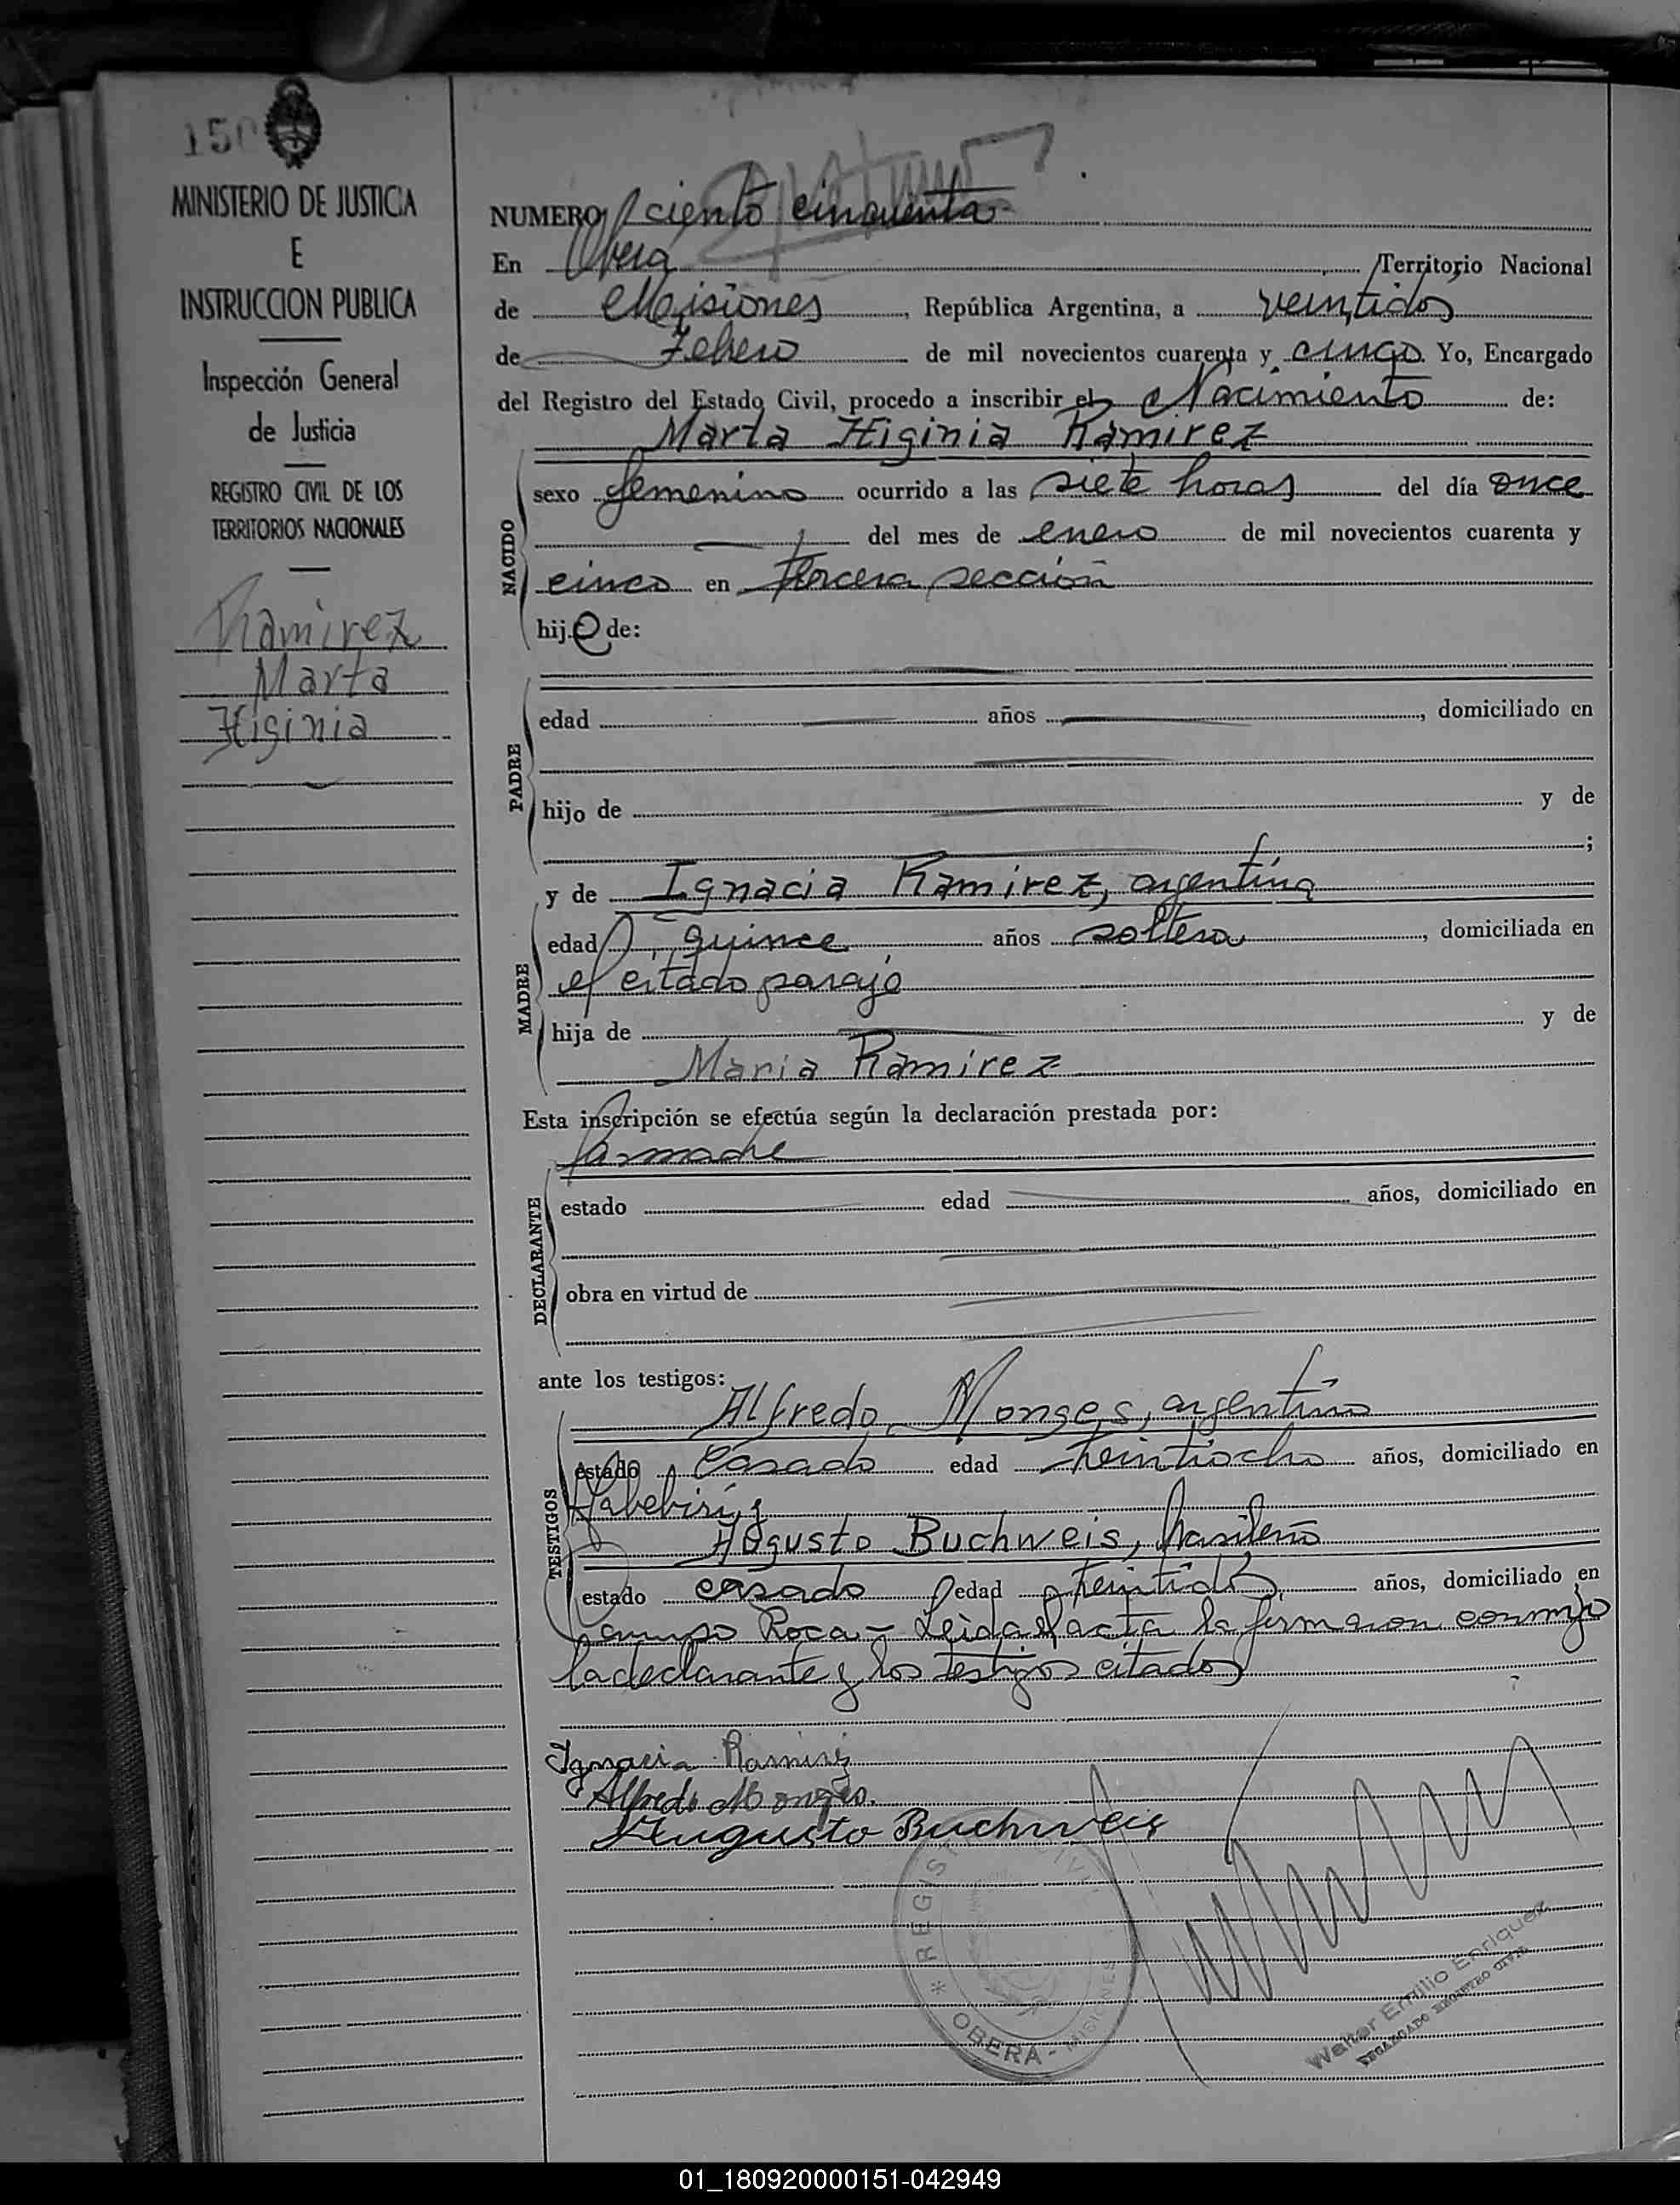 150
MINISTERIO DE JUSTICIA
E
INSTRUCCION PUBLICA
Inspección General
de Justicia
REGISTRO CIVIL DE LOS
TERRITORIOS NACIONALES
Ramirez
Marta
Higinia
NUMERO ciento cinquenta
En Oberá Territorio Nacional
de Misiones, República Argentina, a veintidos
de Febrero de mil novecientos cuarenta y cinco. Yo, Encargado
del Registro del Estado Civil, procedo a inscribir el Nacimiento de:
Marta Higinia Ramirez
NACIDO
sexo femenino ocurrido a las siete horas del día once
del mes de enero de mil novecientos cuarenta y
cinco en tercera sección
hij de:
PADRE
edad años, domiciliado en
hijo de y de
;
y de Ignacia Ramirez, argentina
MADRE
edad quince años soltera, domiciliada en
el citado paraje
hija de y de
Maria Ramirez
Esta inscripción se efectúa según la declaración prestada por:
la madre
DECLARANTE
estado edad años, domiciliado en
obra en virtud de
ante los testigos:
Alfredo Monges, argentino
TESTIGOS
estado casado edad años, domiciliado en
Yabebirí y
Augusto Buchweis, brasileño
estado casado edad años, domiciliado en
Campo Roca - Leida el acta la firmaron conmigo
la declarante y los testigos citados
Ignacia Ramirez
Alfredo Monges.
Augusto Buchweis
* REGISTRO CIVIL
OBERA - MISIONES
Walter Emilio Enriquez
ENCARGADO REGISTRO CIVIL
01_180920000151-042949